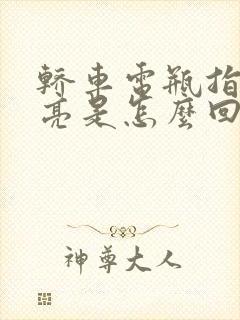 轎車電瓶指
亮是怎麼回
神尊大人